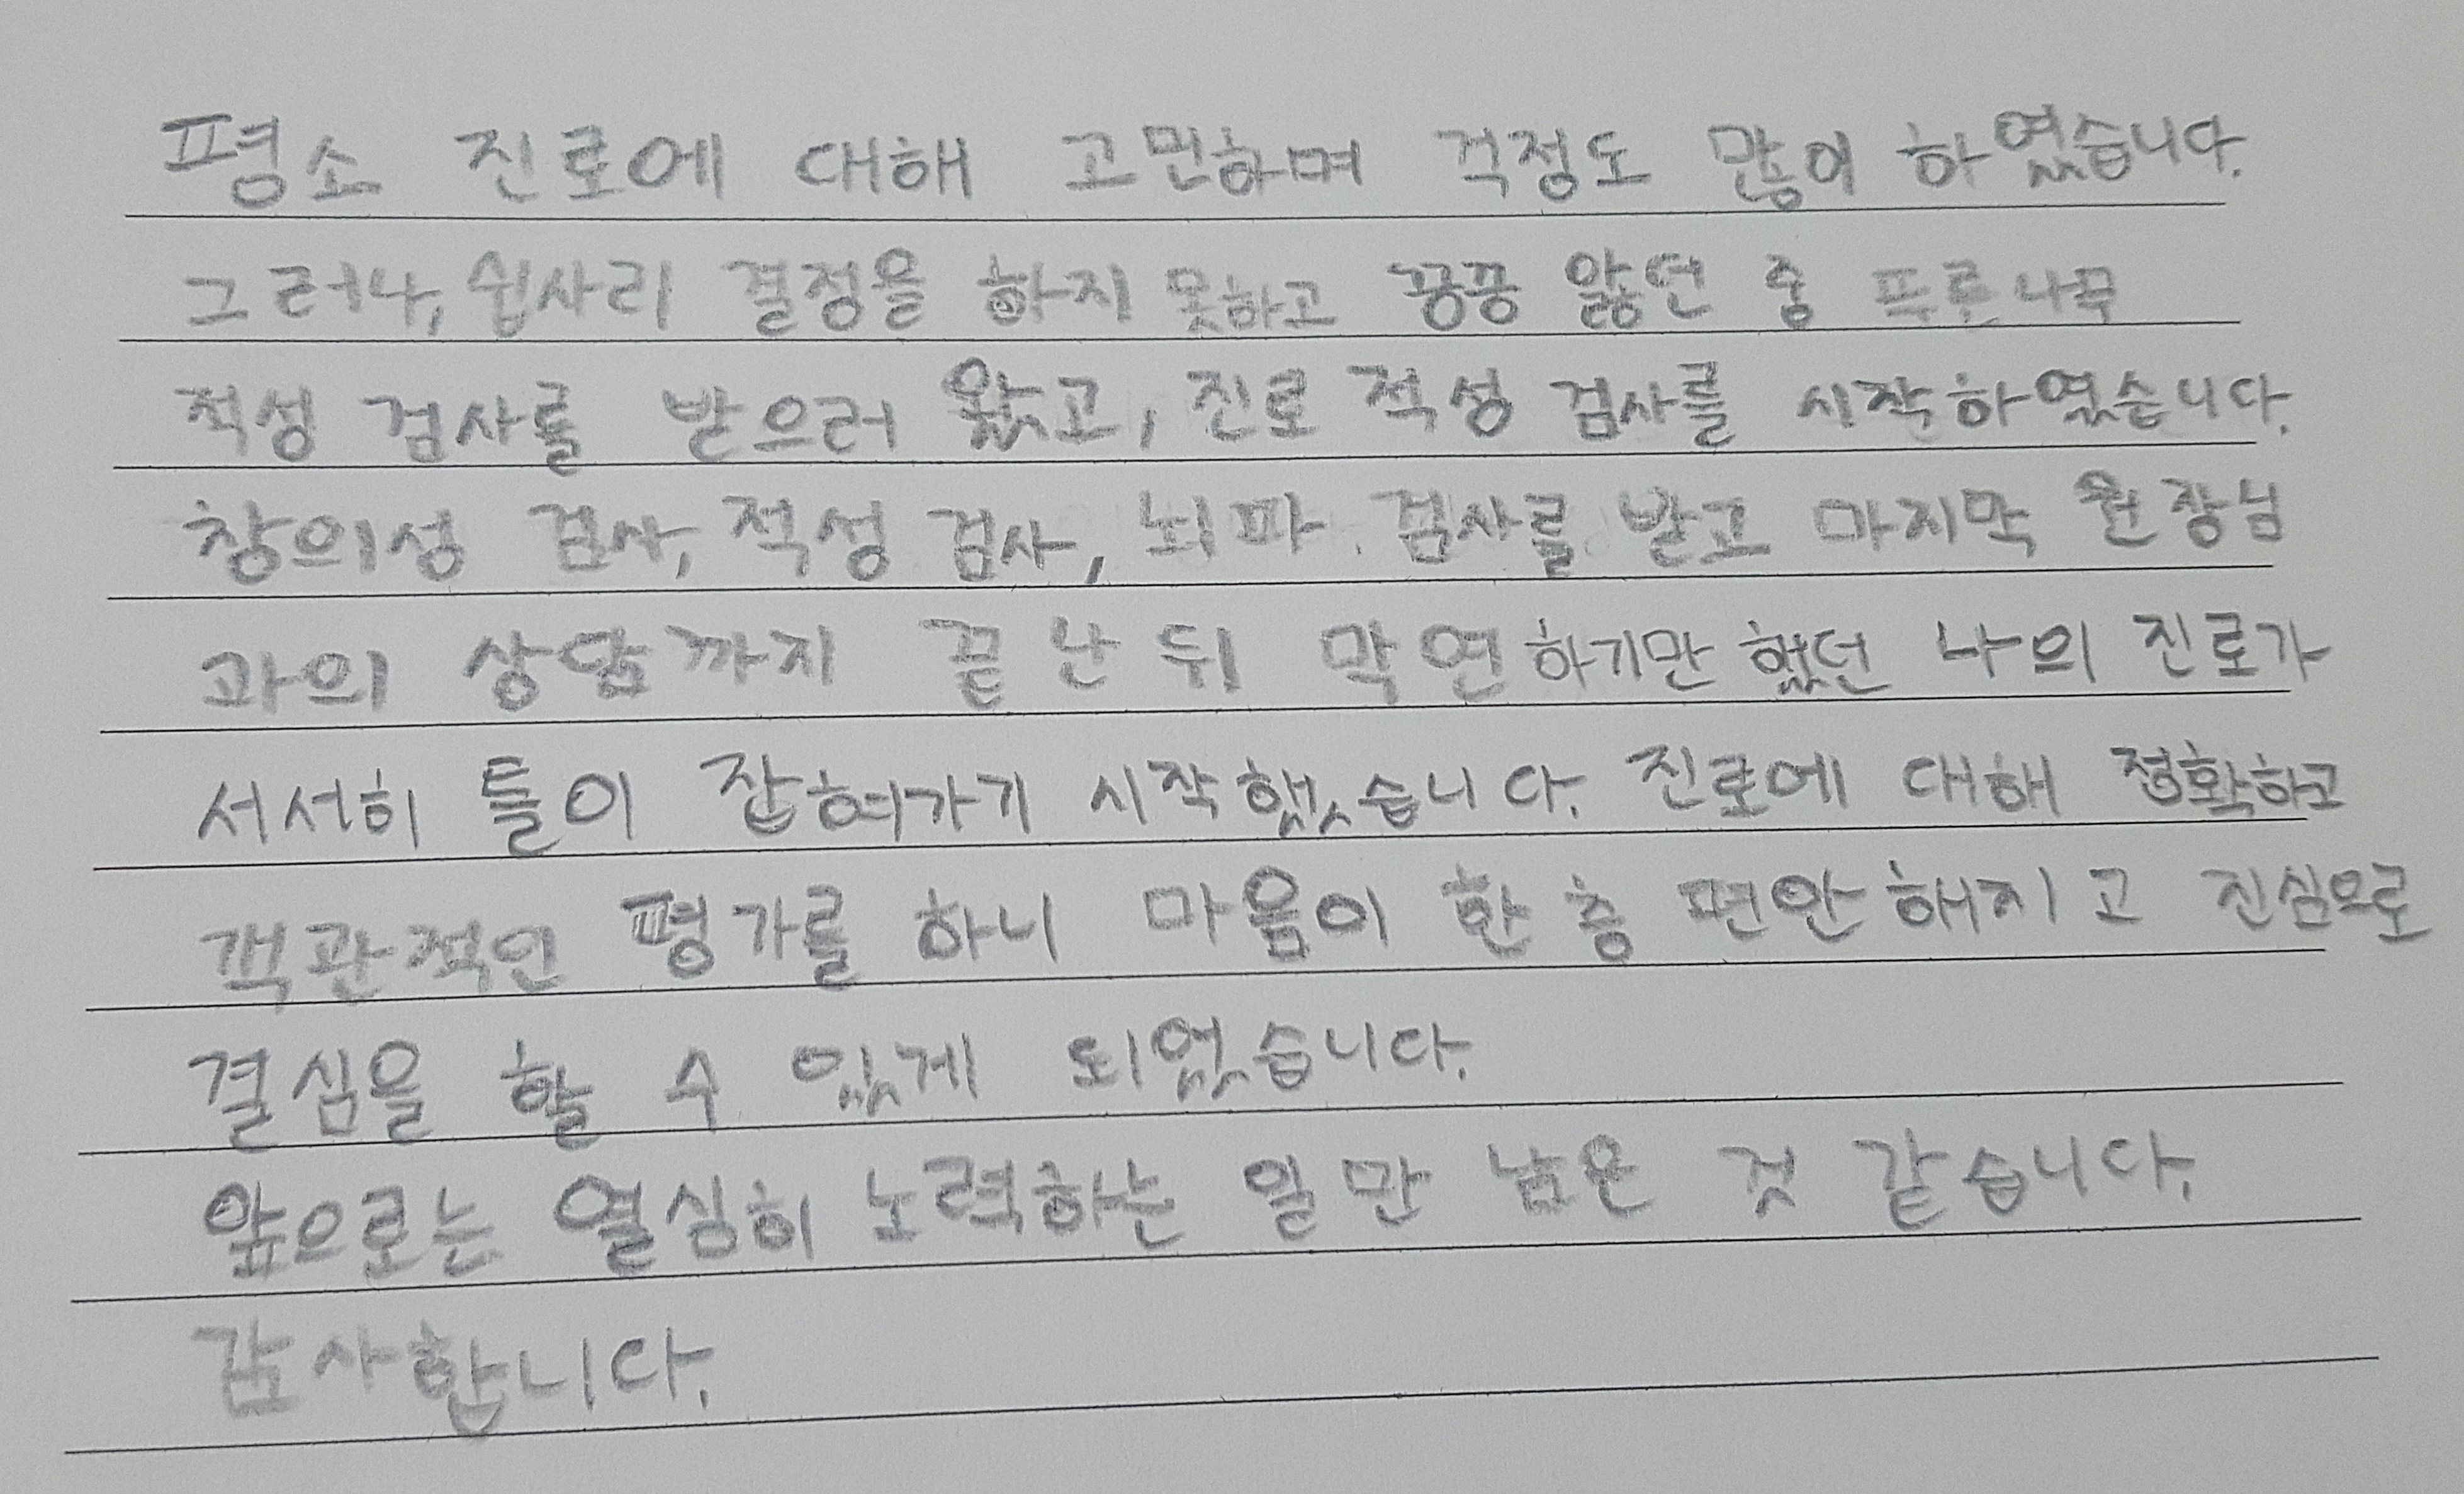 평소 진로에 대해 고민하며 걱정도 많이 하였습니다.
그러나, 쉽사리 결정을 하지 못하고 끙끙 앓던 중 푸른나무
적성 검사를 받으러 왔고, 진로 적성 검사를 시작하였습니다.
창의성 검사, 적성 검사, 뇌파 검사를 받고 마지막 원장님
과의 상담까지 끝난 뒤 막연하기만 했던 나의 진로가
서서히 틀이 잡혀가기 시작했습니다. 진로에 대해 정확하고
객관적인 평가를 하니 마음이 한층 편안해지고 진심으로
결심을 할 수 있게 되었습니다.
앞으로는 열심히 노력하는 일만 남은 것 같습니다.
감사합니다.